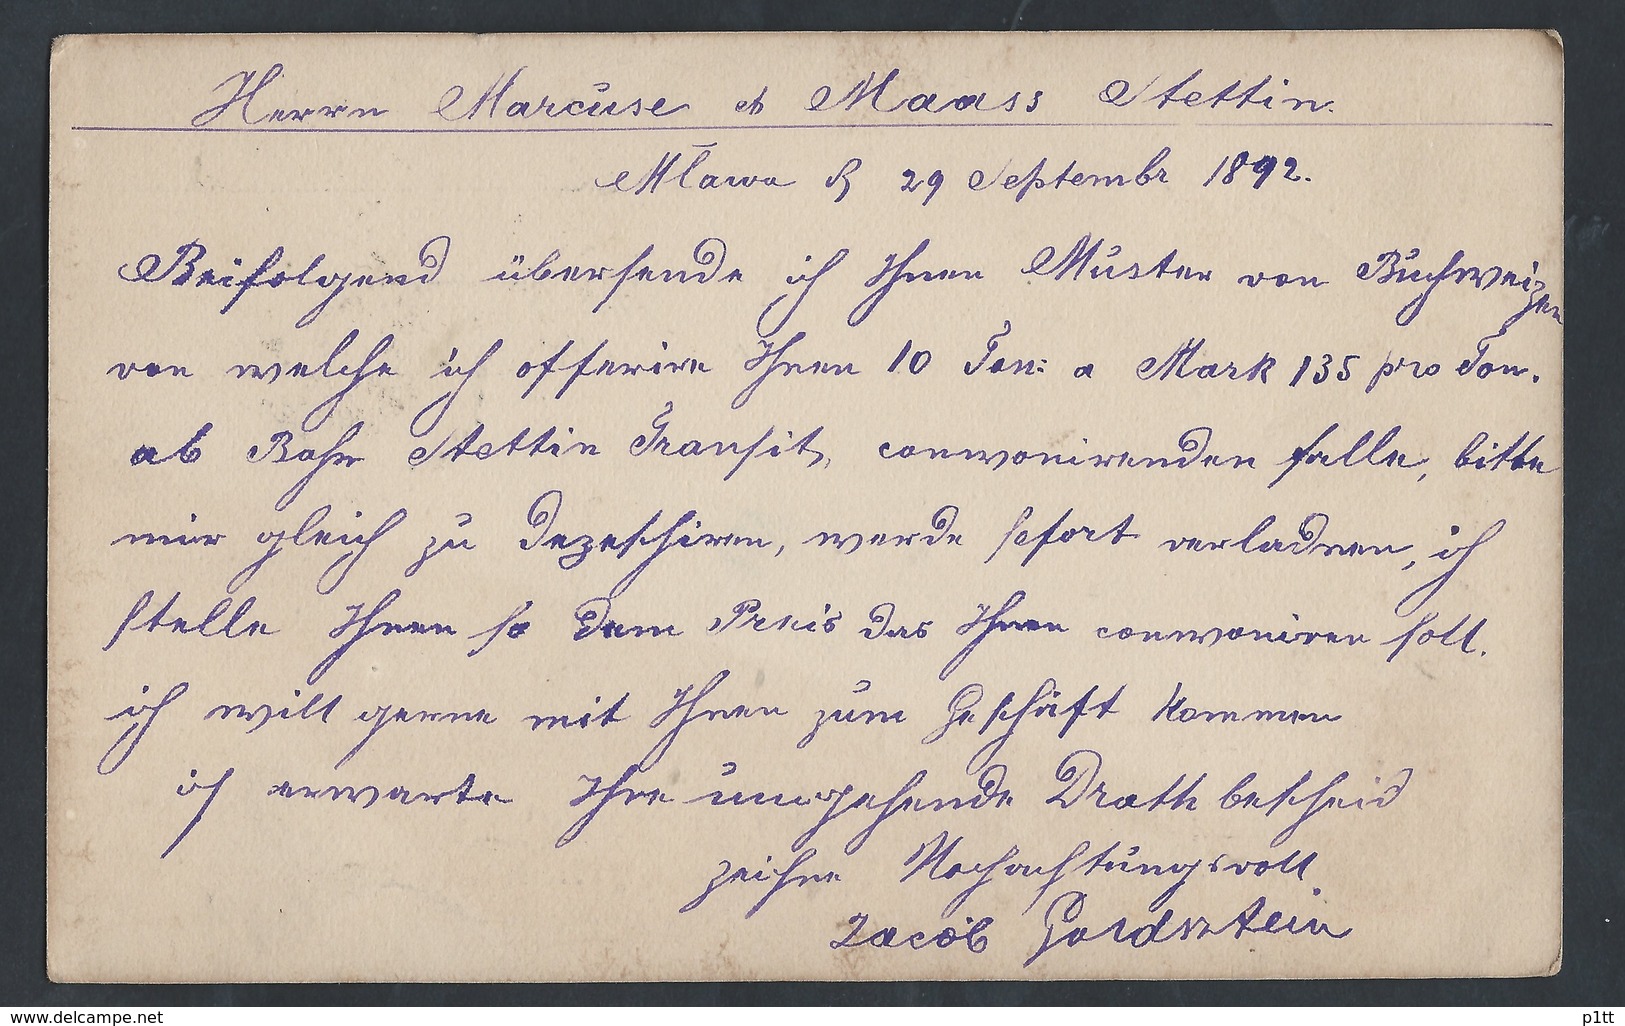 Herrn Marcuse & Maass Stettin.
Mlawa d 29 Septembr 1892.
Beifolgend übersende ich Ihnen Muster von Buchweizen
von welche ich offerire Ihnen 10 Ton: a Mark 135 pro Ton.
ab Bahn Stettin Transit, convonirenden falle, bitte
mir gleich zu depeschiren, werde sofort verladen, ich
stelle Ihnen so dem Preis das Ihnen convoniren soll.
ich will gerne mit Ihnen zum Geschäft kommen
ich erwarte Ihre umgehende Drath bescheid
zeichne Hochachtungsvoll
Jacob Goldstein
www.delcampe.net
p1tt